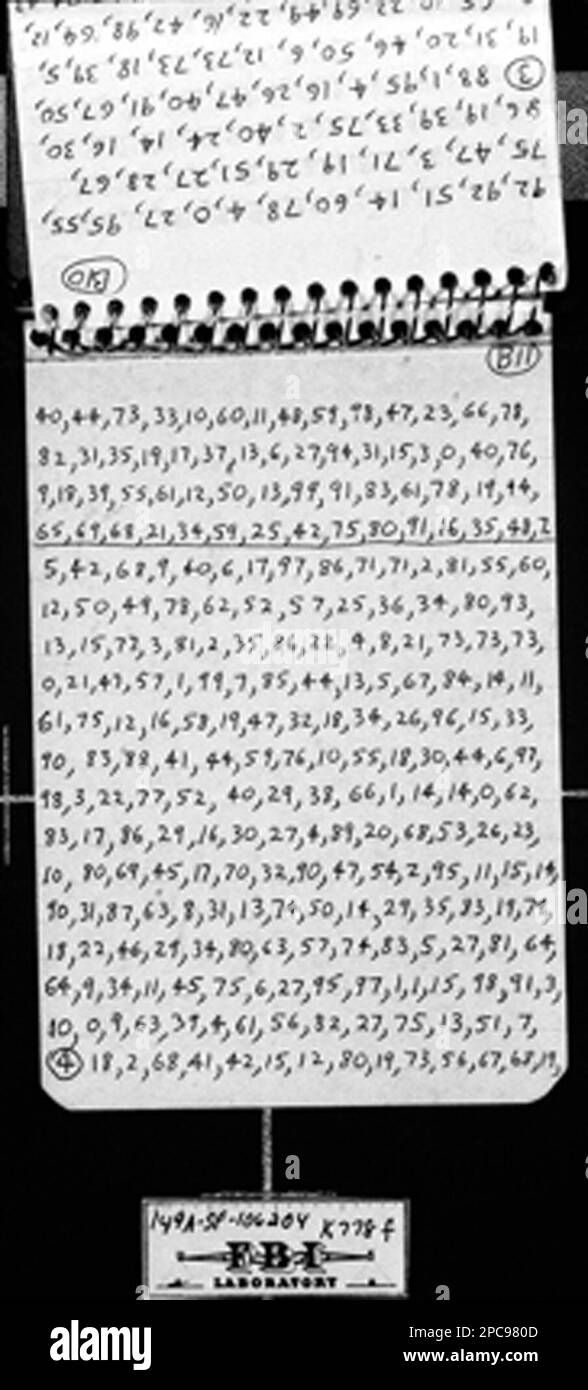 C5 10 22,69,49,22,16,47,98,64,12
19,31,20,46,50,6,12,73,73,18,39,5,
③ 88,1,95,4,16,26,47,40,91,67,50,
86,19,39,33,75,2,40,24,14,16,30,
75,47,3,71,19,29,51,27,28,67,
92,92,51,14,60,78,4,0,27,95,55,
B10
B11
40,44,73,33,10,60,11,48,59,98,47,23,66,78,
82,31,35,19,17,37,13,6,27,94,31,15,3,0,40,76,
9,18,39,55,61,12,50,13,99,91,83,61,78,19,44,
65,69,68,21,34,59,25,42,75,80,91,16,35,48,2
5,42,68,9,40,6,17,97,86,71,71,2,81,55,60,
12,50,49,78,62,52,57,25,36,34,80,93,
13,15,72,3,81,2,35,86,22,9,8,21,73,73,73,
0,21,47,57,1,99,7,85,44,13,5,67,84,14,11,
61,75,12,16,58,19,47,32,18,34,26,96,15,33,
90,83,88,41,44,59,76,10,55,18,30,44,6,97,
98,3,22,77,52,40,29,38,66,1,14,14,0,62,
83,17,86,29,16,30,27,4,89,20,68,53,26,23,
10,80,69,45,17,70,32,90,47,54,2,95,11,15,14,
90,31,87,63,8,31,13,74,50,14,29,35,83,19,79,
18,22,46,29,34,80,63,57,74,83,5,27,81,64,
64,9,34,11,45,75,6,27,95,97,1,1,15,98,91,3,
10,0,9,63,39,4,61,56,82,27,75,13,51,7,
④ 18,2,68,41,42,15,12,80,19,73,56,67,68,19,
149A-SF-106204 K778 f
FBI
LABORATORY
alamy
Image ID: 2PC980D
www.alamy.com